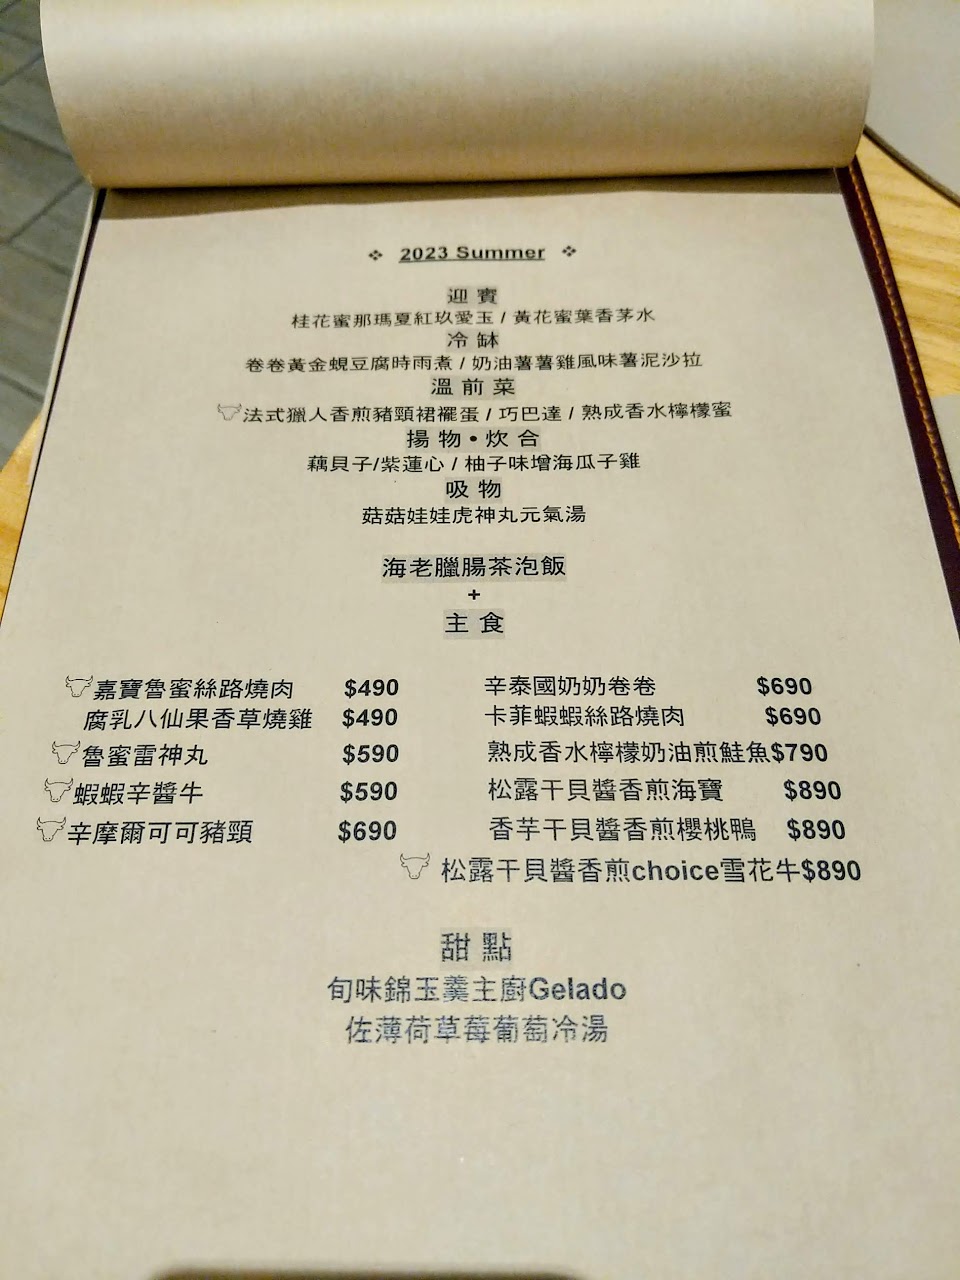 ❖ 2023 Summer ❖
迎賓
桂花蜜那瑪夏紅玖愛玉 / 黃花蜜葉香茅水
冷缽
卷卷黃金蜆豆腐時雨煮 / 奶油薯薯雞風味薯泥沙拉
溫前菜
法式獵人香煎豬頸裙襬蛋 / 巧巴達 / 熟成香水檸檬蜜
揚物•炊合
藕貝子/紫蓮心 / 柚子味增海瓜子雞
吸物
菇菇娃娃虎神丸元氣湯
海老臘腸茶泡飯
+
主食
嘉寶魯蜜絲路燒肉 $490 辛泰國奶奶卷卷 $690
腐乳八仙果香草燒雞 $490 卡菲蝦蝦絲路燒肉 $690
魯蜜雷神丸 $590 熟成香水檸檬奶油煎鮭魚$790
蝦蝦辛醬牛 $590 松露干貝醬香煎海寶 $890
辛摩爾可可豬頸 $690 香芋干貝醬香煎櫻桃鴨 $890
松露干貝醬香煎choice雪花牛$890
甜點
旬味錦玉羹主廚Gelado
佐薄荷草莓葡萄冷湯